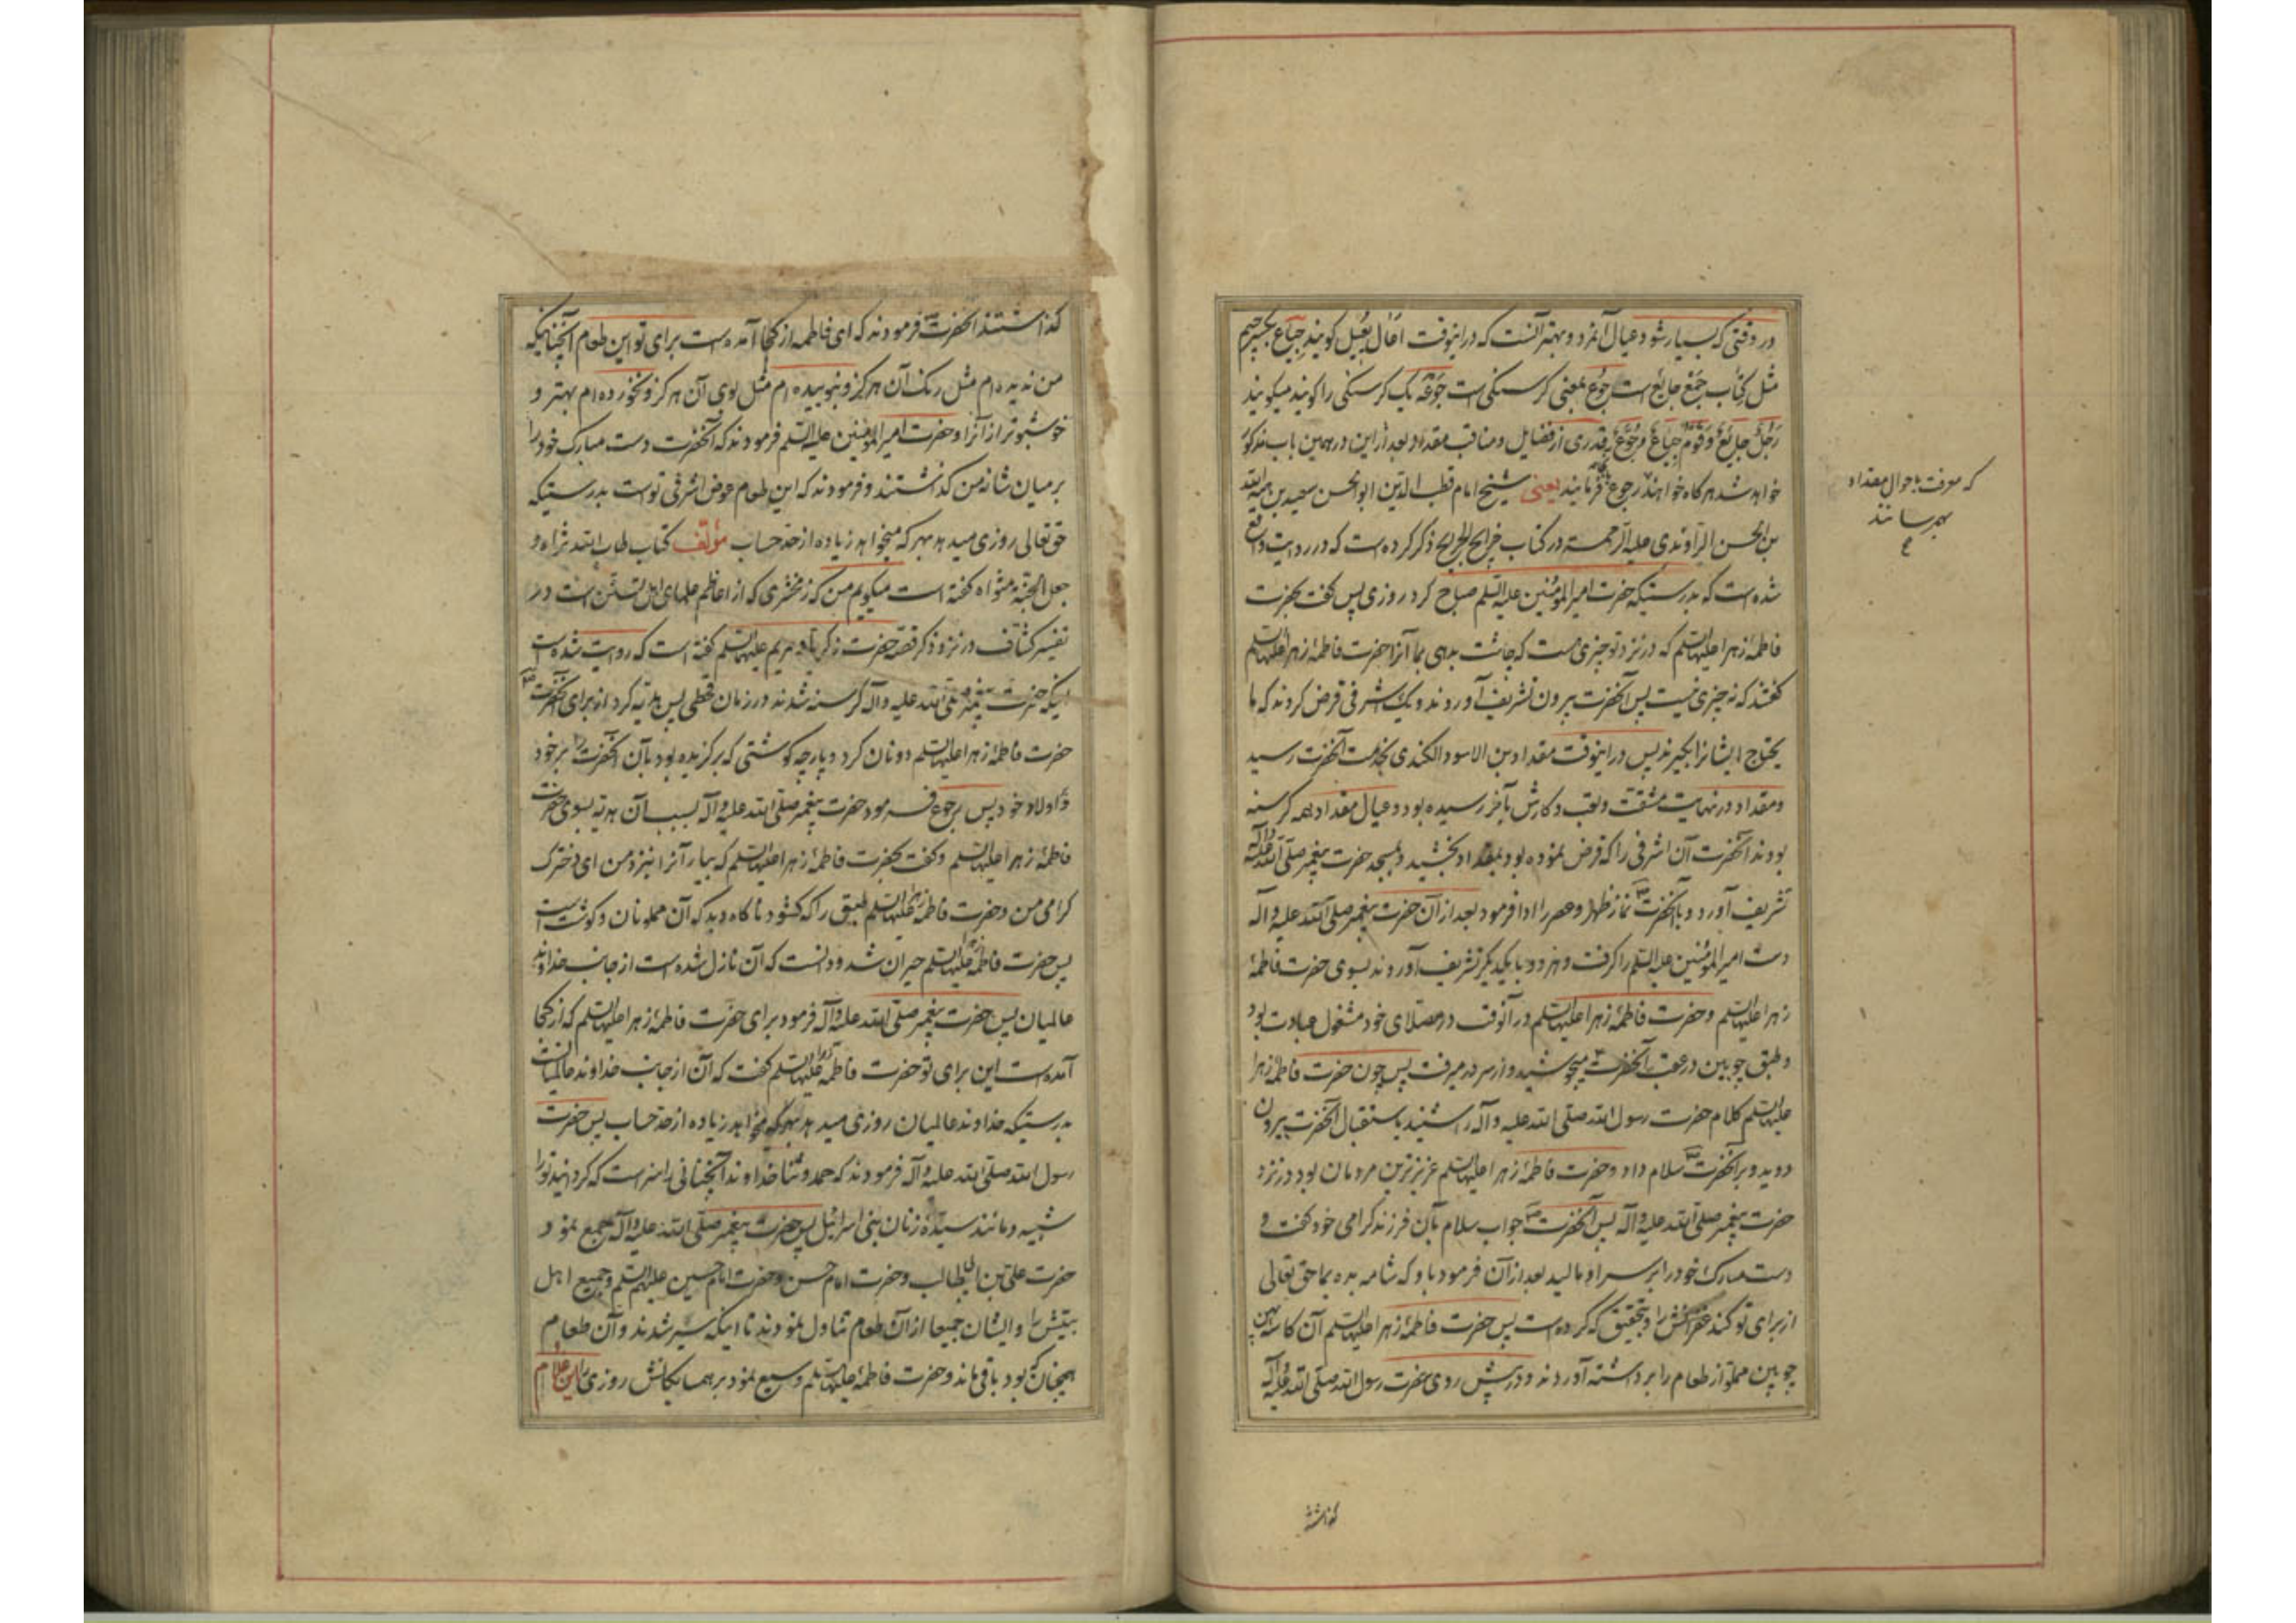 در وقتی که بسیار شود عیال آنمرد و بهتر آنست که دراینوقت اعال یعیل کویند جیاع بکسر جیم
مثل کتاب جمع جایع است جوع بمعنی کرسنکی است جوعة یک کرسنکی را کویند میکویند
رجل جایع و قوم جیاع و جوع قدری از فضایل و مناقب مقداد بعد ازاین در همین باب مذکور
خواهد شد هرکاه خواهند رجوع فرمایند یعنی شیخ امام قطب الدین ابوالحسن سعید بن هبةالله
بن الحسن الراوندی علیه الرحمة در کتاب خرایج الجرایح ذکر کرده است که در روایت واقع
شده است که بدرستیکه حضرت امیرالمؤمنین علیه السلم صباح کرد روزی پس کفت بحضرت
فاطمۀ زهرا علیها السلم که در نزد تو چیزی هست که چاشت بدهی بما آنرا حضرت فاطمۀ زهرا علیها السلم
کفتند که نه چیزی نیست پس آنحضرت بیرون تشریف آوردند و یک اشرفی قرض کردند که ما
یحتاج ایشانرا بکیرند پس دراینوقت مقداد بن الاسود الکندی بخدمت آنحضرت رسید
و مقداد در نهایت مشقت و تعب و کارش بآخر رسیده بود و عیال مقداد همه کرسنه
بودند آنحضرت آن اشرفی را که قرض نموده بود بمقداد بخشید و بمسجد حضرت پیغمبر صلی الله علیه وآله
تشریف آورد و با آنحضرت ص نماز ظهر و عصر را ادا فرمود بعد از آن حضرت پیغمبر صلی الله علیه و آله
دست امیرالمؤمنین علیه السلم را کرفت و هر دو با یکدیکر تشریف آوردند بسوی حضرت فاطمۀ
زهرا علیها السلم و حضرت فاطمۀ زهرا علیها السلم در آنوقت در مصلای خود مشغول عبادت بود
و طبق چوبین در عقب آنحضرت میجوشید و از سر در میرفت پس چون حضرت فاطمۀ زهرا
علیها السلم کلام حضرت رسول الله صلی الله علیه و آله را شنید باستقبال آنحضرت بیرون
دوید و بر آنحضرت ص سلام داد و حضرت فاطمۀ زهرا علیها السلم عزیزترین مردمان بود در نزد
حضرت پیغمبر صلی الله علیه وآله پس آنحضرت ص جواب سلام بآن فرزند کرامی خود کفت و
دست مبارک خود را بر سر او مالید بعد از آن فرمود باو که شام بده بما حق تعالی
از برای تو کند غفرانش را و بتحقیق که کرده است پس حضرت فاطمۀ زهرا علیها السلم آن کاسه پهن
چوبین مملو از طعام را برداشته آوردند و در پیش روی حضرت رسول الله صلی الله علیه وآله
که معرفت باحوال مقداد
بهمرسانند
ع
کذاشتند
کذاشتند آنحضرت ص فرمودند که ای فاطمه از کجا آمده است برای تو این طعام آنچنانیکه
من ندیده ام مثل رنک آن هرکز و نبوییده ام مثل بوی آن هرکز و نخورده ام بهتر و
خوشبوتر از آنرا و حضرت امیرالمؤمنین علیه السلم فرمودند که آنحضرت دست مبارک خود را
بر میان شانه من کذاشتند و فرمودند که این طعام عوض اشرفی تو است بدرستیکه
حق تعالی روزی میدهد بهر که میخواهد زیاده از حد حساب مؤلف کتاب طاب الله ثراه و
جعل الجنة مثواه کفته است میکویم من که زمخشری که از اعاظم علمای اهل تسنن است در
تفسیر کشاف در نزد ذکر قصۀ حضرت زکریا و مریم علیهما السلم کفته است که روایت شده است
اینکه حضرت پیغمبر صلی الله علیه و آله کرسنه شدند در زمان قحطی پس هدیه کرد از برای آنحضرت ص
حضرت فاطمۀ زهرا علیها السلم دو نان کرد و پارچه کوشتی که برکزیده بود بآن آنحضرت را بر خود
و اولاد خود پس رجوع فرمود حضرت پیغمبر صلی الله علیه وآله بسبب آن هدیه بسوی حضرت
فاطمۀ زهرا علیها السلم و کفت بحضرت فاطمۀ زهرا علیها السلم که بیار آنرا بنزد من ای دخترک
کرامی من و حضرت فاطمۀ زهرا علیها السلم طبق را که کشود ناکاه دید که آن مملو نان و کوشت است
پس حضرت فاطمۀ زهرا علیها السلم حیران شد و دانست که آن نازل شده است از جانب خداوند
عالمیان پس حضرت پیغمبر صلی الله علیه وآله فرمود برای حضرت فاطمۀ زهرا علیها السلم که از کجا
آمده است این برای تو حضرت فاطمۀ زهرا علیها السلم کفت که آن از جانب خداوند عالمیان است
بدرستیکه خداوند عالمیان روزی میدهد بهرکه میخواهد زیاده از حد حساب پس حضرت
رسول الله صلی الله علیه وآله فرمودند که حمد و ثنا خداوند آنچنانی را سزاست که کردانید تو را
شبیه و مانند سیدۀ زنان بنی اسرائیل پس حضرت پیغمبر صلی الله علیه وآله جمع نمود
حضرت علی بن ابی طالب و حضرت امام حسن و حضرت امام حسین علیهم السلم و جمیع اهل
بیتش را و ایشان جمیعا از آن طعام تناول نمودند تا اینکه سیر شدند و آن طعام
همچنان که بود باقی ماند و حضرت فاطمۀ علیها السلم وسیع نمود بر همسایکانش روزی